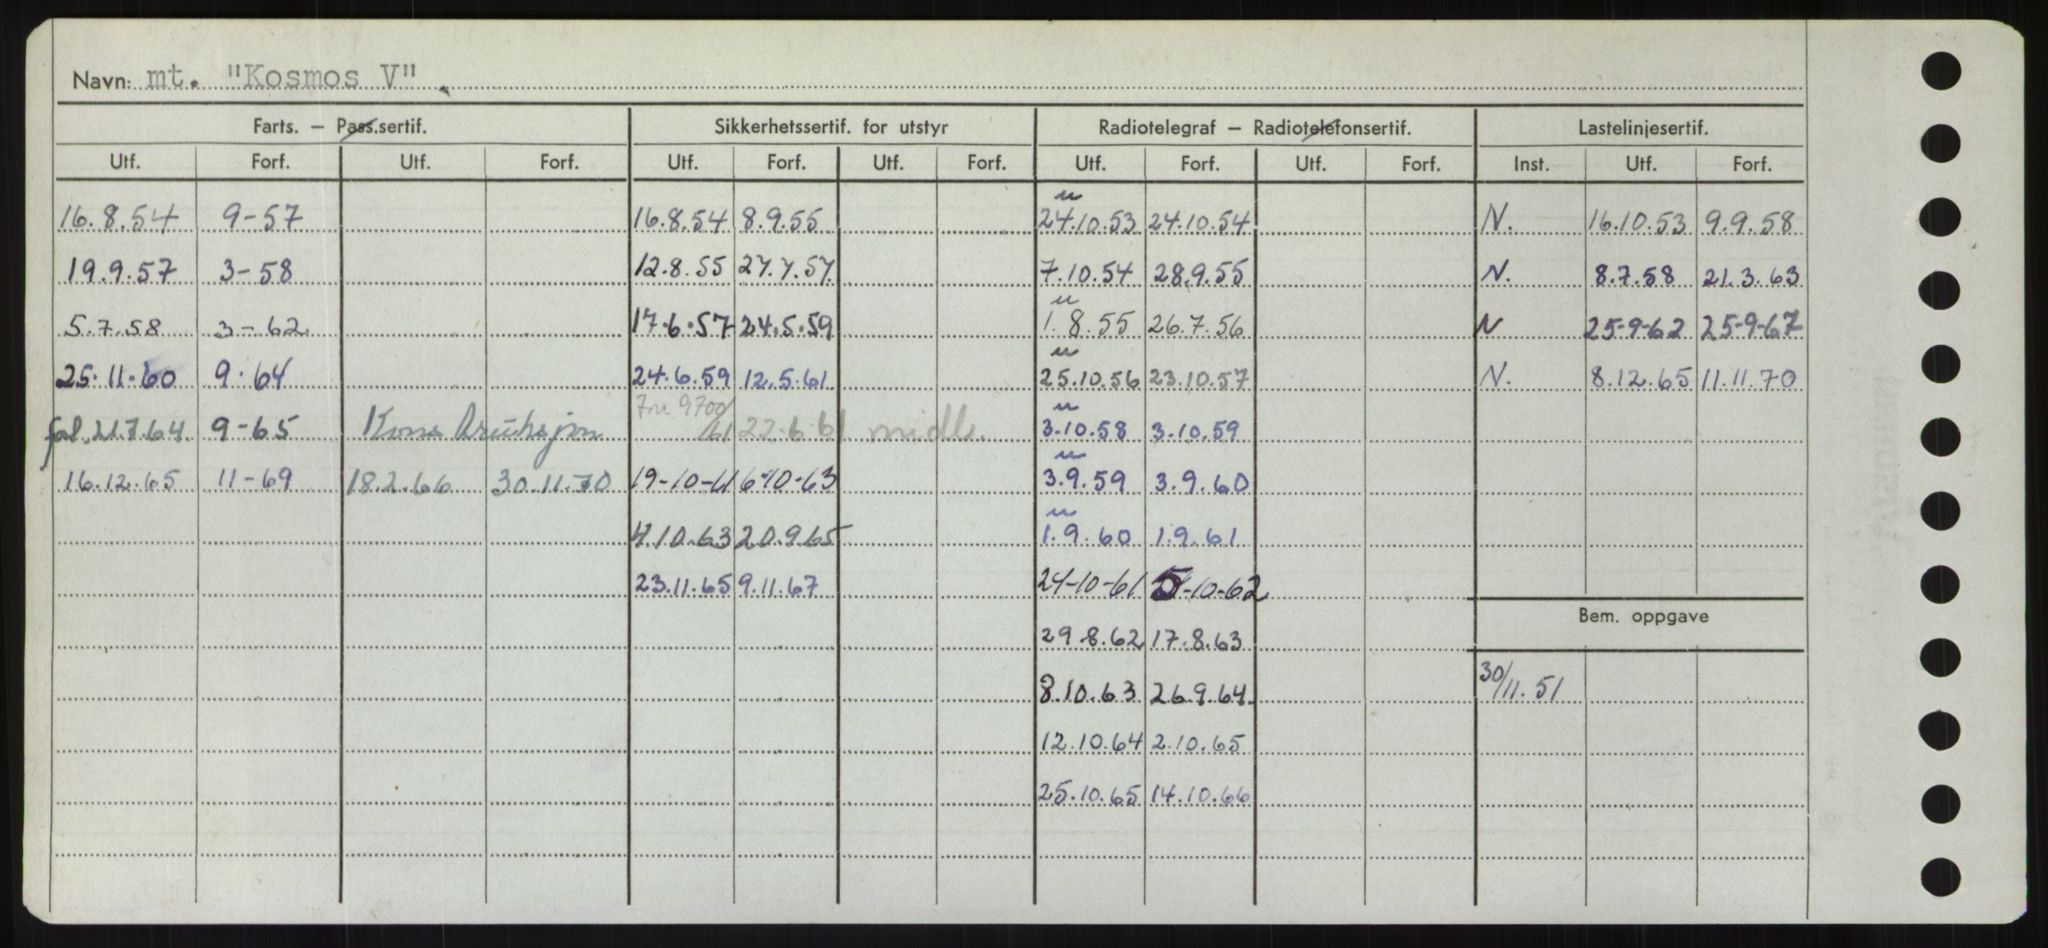 Navn: mt. "Kosmos V".
Farts. – Pass.sertif. Sikkerhetssertif. for utstyr Radiotelegraf – Radiotelefonsertif. Lastelinjesertif.
Utf. Forf. Utf. Forf. Utf. Forf. Utf. Forf. Utf. Forf. Utf. Forf. Inst. Utf. Forf.
16.8.54 9-57 16.8.54 8.9.55 24.10.53 24.10.54 N. 16.10.53 9.9.58
19.9.57 3-58 12.8.55 27.7.57 7.10.54 28.9.55 N. 8.7.58 21.3.63
5.7.58 3-62 17.6.57 24.5.59 1.8.55 26.7.56 N 25-9-62 25-9-67
25.11.60 9.64 24.6.59 12.5.61 25.10.56 23.10.57 N. 8.12.65 11.11.70
21.7.64 9-65 9700/61 22.6.61 midl. 3.10.58 3.10.59
16.12.65 11-69 18.2.66 30.11.70 19-10-61 6-10-63 3.9.59 3.9.60
4.10.63 20.9.65 1.9.60 1.9.61
23.11.65 9.11.67 24-10-61 5-10-62
Bem. oppgave
29.8.62 17.8.63
8.10.63 26.9.64 30/11.51
12.10.64 2.10.65
25.10.65 14.10.66